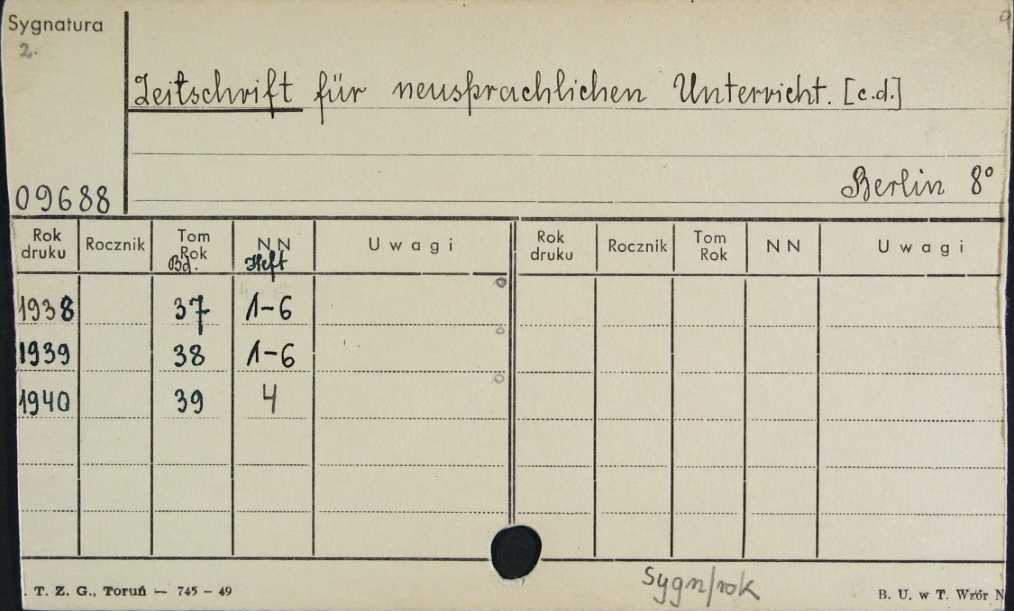 Sygnatura
2.
9
Zeitschrift für neusprachlichen Unterricht. [c.d.]
Berlin 8°
09688
Rok druku Rocznik Tom Rok Bd. NN Heft Uwagi Rok druku Rocznik Tom Rok NN Uwagi
1938 37 1-6
1939 38 1-6
1940 39 4
Sygn/rok
. T. Z. G., Toruń — 745 - 49
B. U. w T. Wzór N